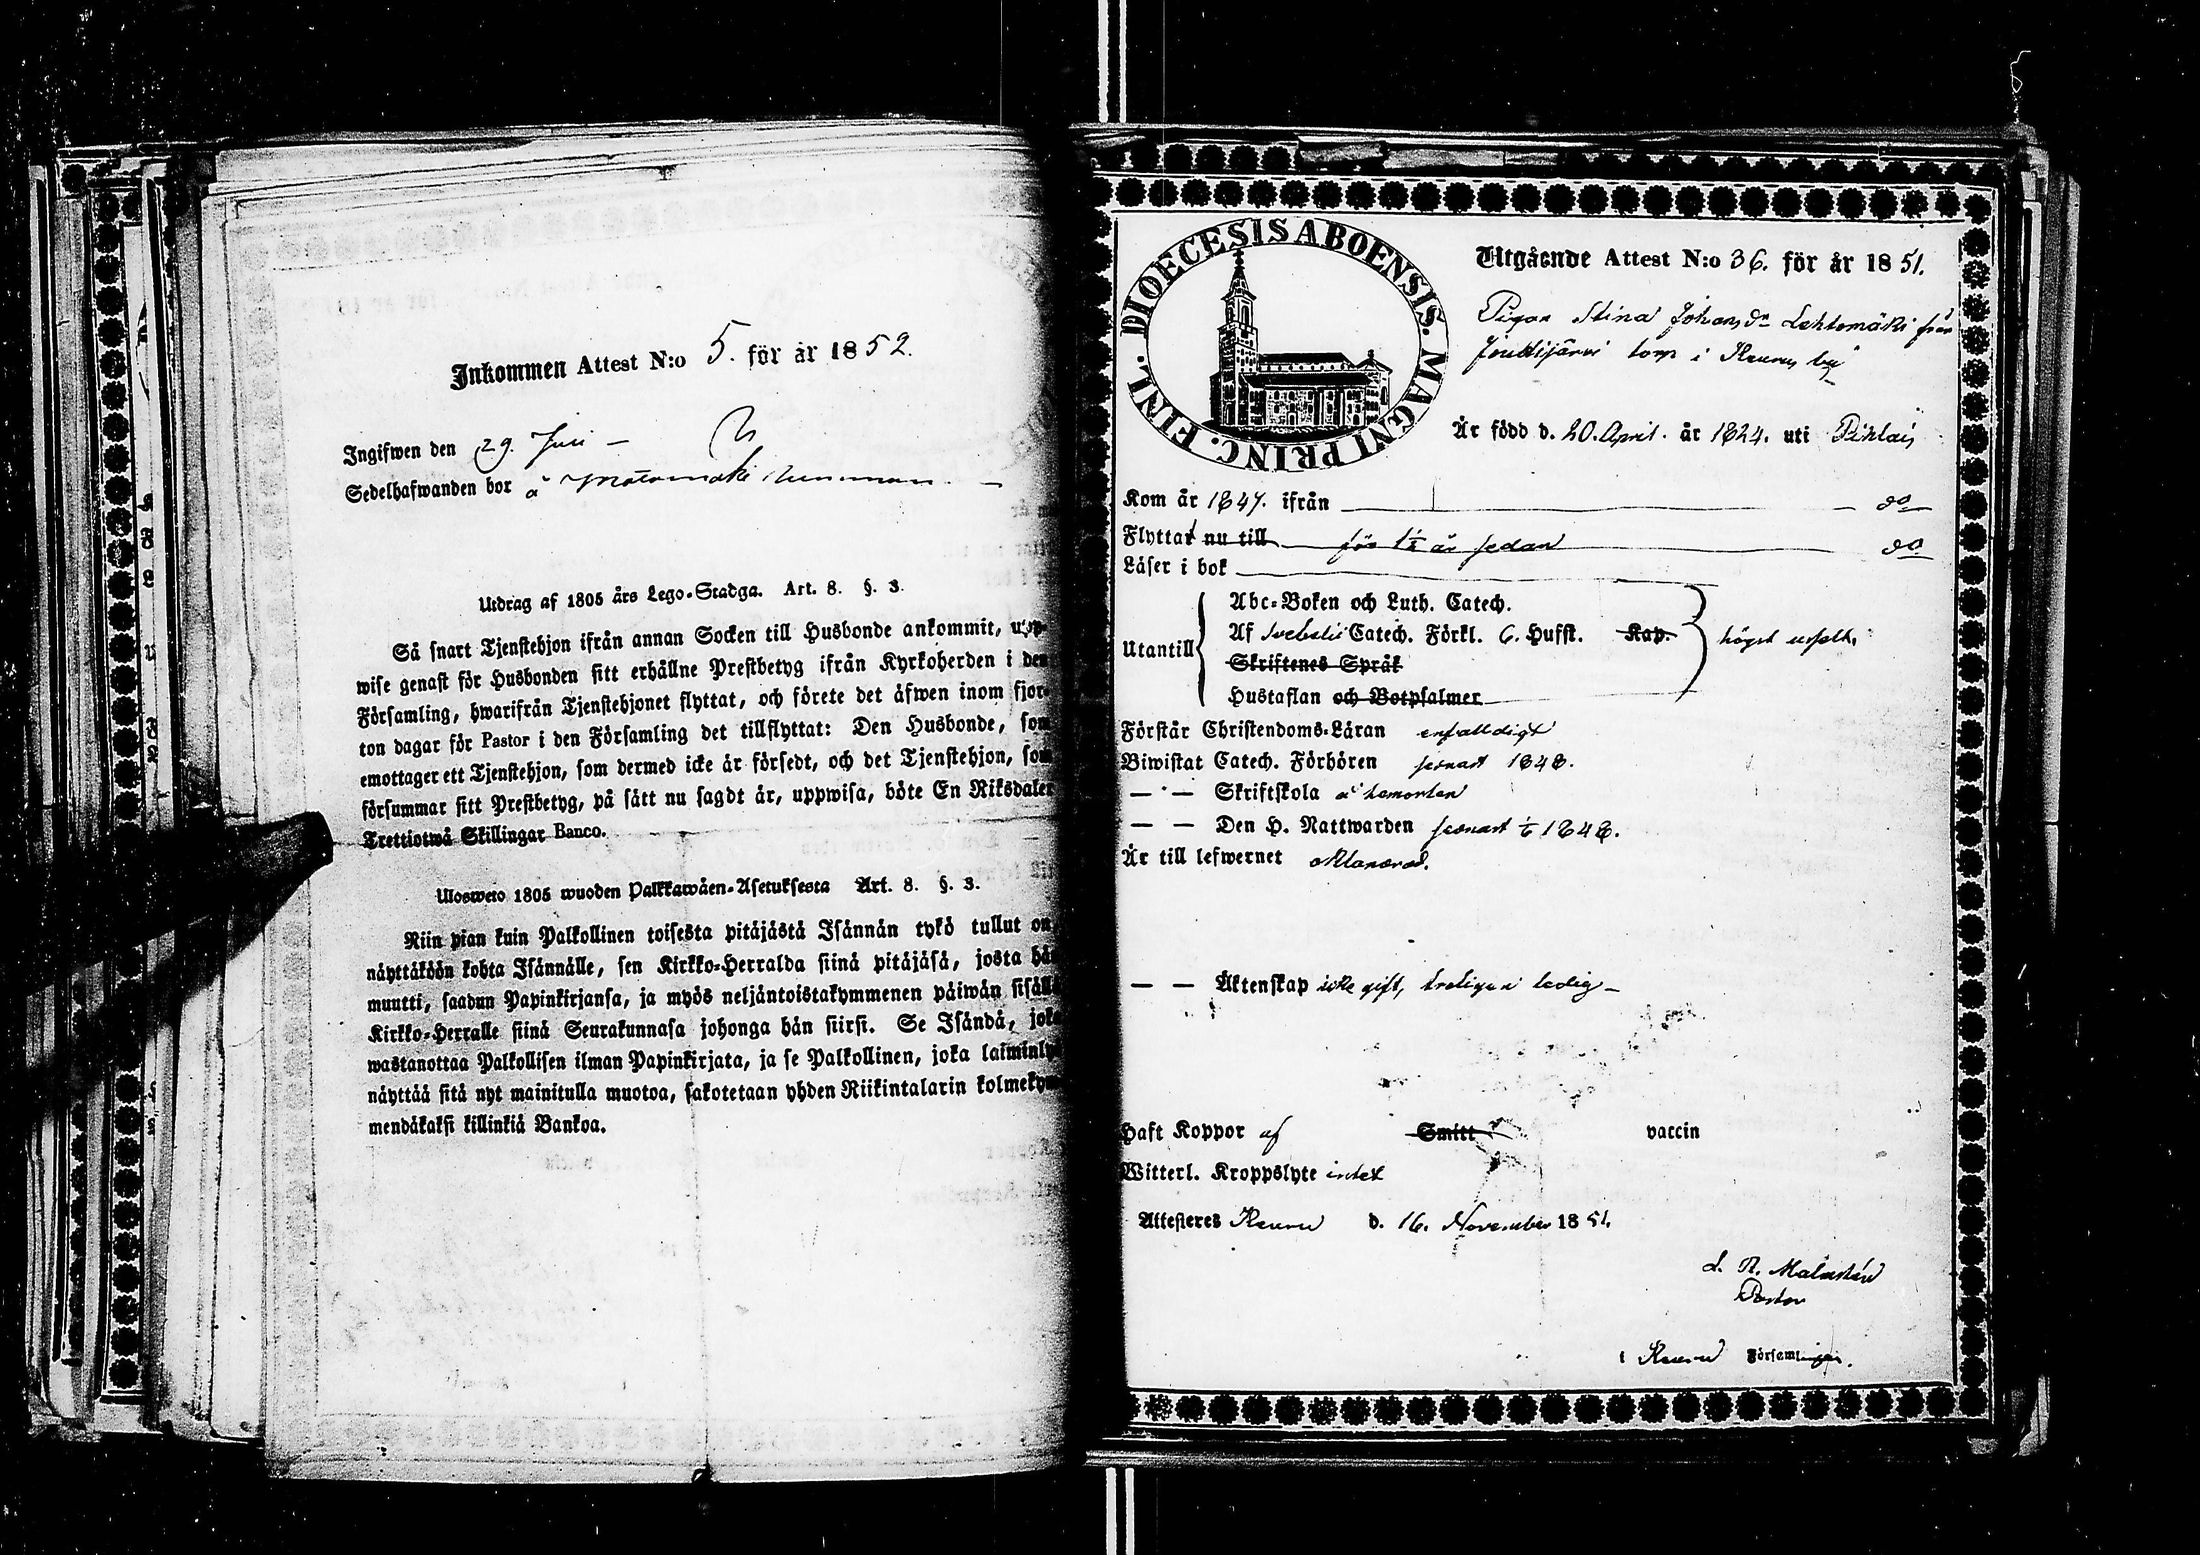 Inkommen Attest N:o 5. för år 1852.
Ingifwen den 29. Juni –
Sedelhafwanden bor å
Utdrag af 1805 års Lego-Stadga. Art. 8. §. 3.
Så snart Tjenstehjon ifrån annan Socken till Husbonde ankommit, upp-
wise genast för Husbonden sitt erhållne Prestbetyg ifrån Kyrkoherden i den
Församling, hwarifrån Tjenstehjonet flyttat, och förete det äfwen inom fjor-
ton dagar för Pastor i den Församling det tillflyttat: Den Husbonde, som
emottager ett Tjenstehjon, som dermed icke är försedt, och det Tjenstehjon, som
försummar sitt Prestbetyg, på sätt nu sagdt är, uppwisa, böte En Riksdaler
Trettiotwå Skillingar Banco.
Ulosweto 1805 wuoden Palkkawäen-Asetuksesta Art. 8. §. 3.
Niin pian kuin Palkollinen toisesta pitäjästä Isännän tykö tullut on,
näyttäköön kohta Isännälle, sen Kirkko-Herralda siinä pitäjäsä, josta hän
muutti, saadun Papinkirjansa, ja myös neljäntoistakymmenen päiwän sisällä
Kirkko-Herralle siinä Seurakunnasa johonga hän siirsi. Se Isändä, joka
wastanottaa Palkollisen ilman Papinkirjata, ja se Palkollinen, joka laiminlyö
näyttää sitä nyt mainitulla muotoa, sakotetaan yhden Riikintalarin kolmekym-
mendäkaksi killinkiä Bankoa.
FINL. DIOECESIS ABOENSIS. MAGNI PRINC.
Utgående Attest N:o 36. för år 1851.
Pigan Stina Johansdr Lehtomäki från
torp i Keuru by
Är född d. 20. April. år 1824. uti Pihlais
Kom år 1847. ifrån do
Flyttat nu till för 1½ år sedan do
Läser i bok
Abc-Boken och Luth. Catech.
Utantill Af Svebelii Catech. Förkl. 6. Hufst. Kap. högst uselt.
Skriftenes Språk
Hustaflan och Botpsalmer
Förstår Christendoms-Läran enfalldigt
Biwistat Catech. Förhören senast 1848.
— — Skriftskola å hemorten
— — Den H. Nattwarden senast 1848.
Är till lefwernet oklanrad.
— — Äktenskap icke gift, troligen ledig –
Haft Koppor af Smitt vaccin
Witterl. Kroppslyte intet
Attesteres Keuru d. 16. November 1851.
Pastor
i Keuru Församlingar.